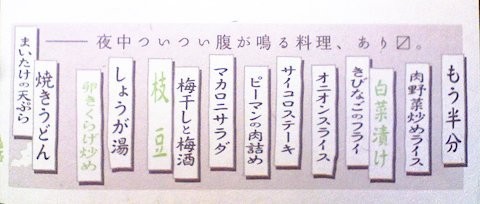 夜中ついつい腹が鳴る料理、あり〼。
もう半分
肉野菜炒めライス
白菜漬け
きびなごのフライ
オニオンスライス
サイコロステーキ
ピーマンの肉詰め
マカロニサラダ
梅干しと梅酒
枝豆
しょうが湯
卵きくらげ炒め
焼きうどん
まいたけの天ぷら